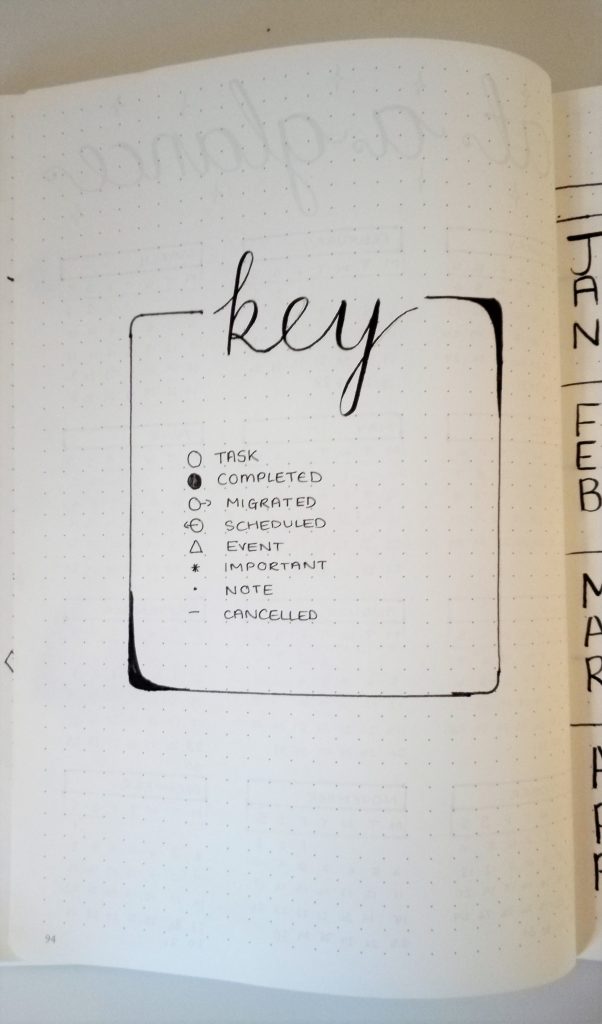 key
○ TASK
● COMPLETED
○→ MIGRATED
←○ SCHEDULED
△ EVENT
* IMPORTANT
• NOTE
— CANCELLED
94
JAN
FEB
MAR